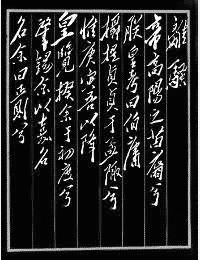 離騷
帝高陽之苗裔兮
朕皇考曰伯庸
攝提貞于孟陬兮
惟庚寅吾以降
皇覽揆余于初度兮
肇錫余以嘉名
名余曰正則兮